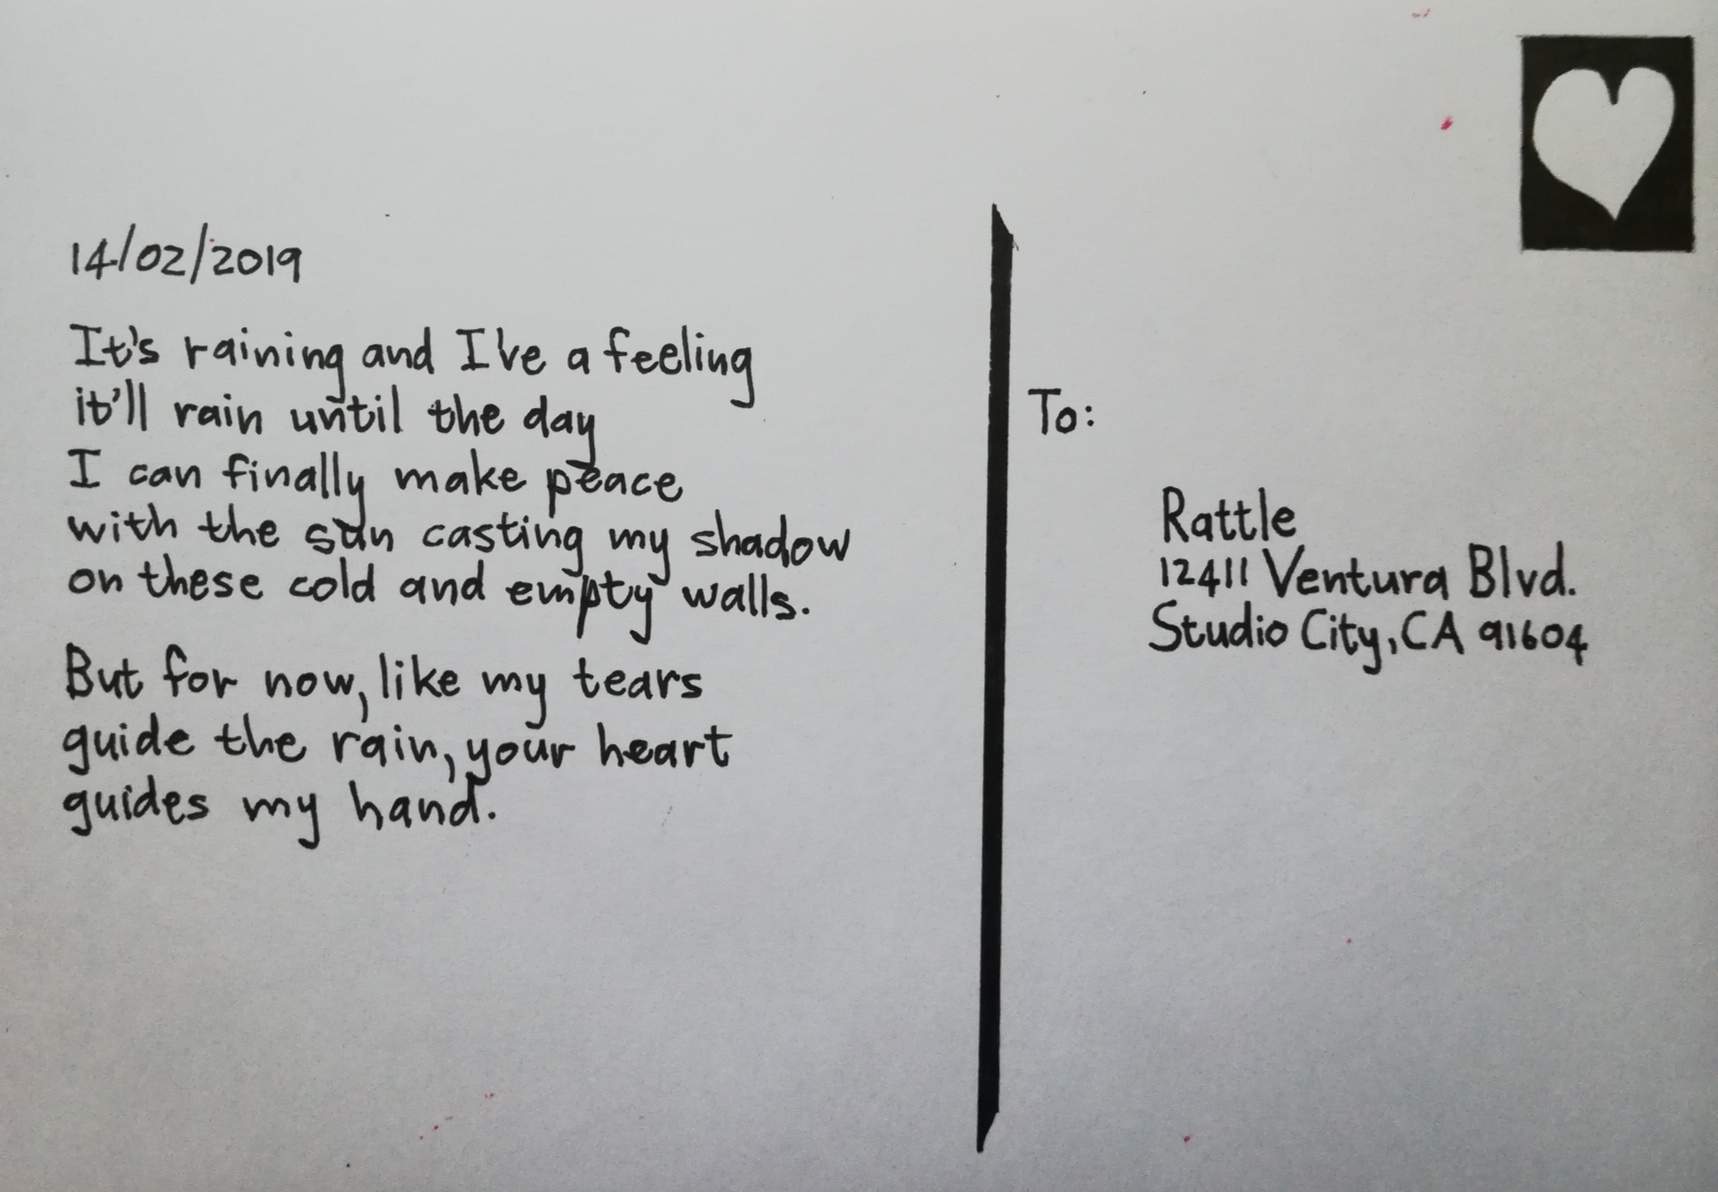 14/02/2019
It's raining and I've a feeling
it'll rain until the day
I can finally make peace
with the sun casting my shadow
on these cold and empty walls.
But for now, like my tears
guide the rain, your heart
guides my hand.
To:
Rattle
12411 Ventura Blvd.
Studio City, CA 91604